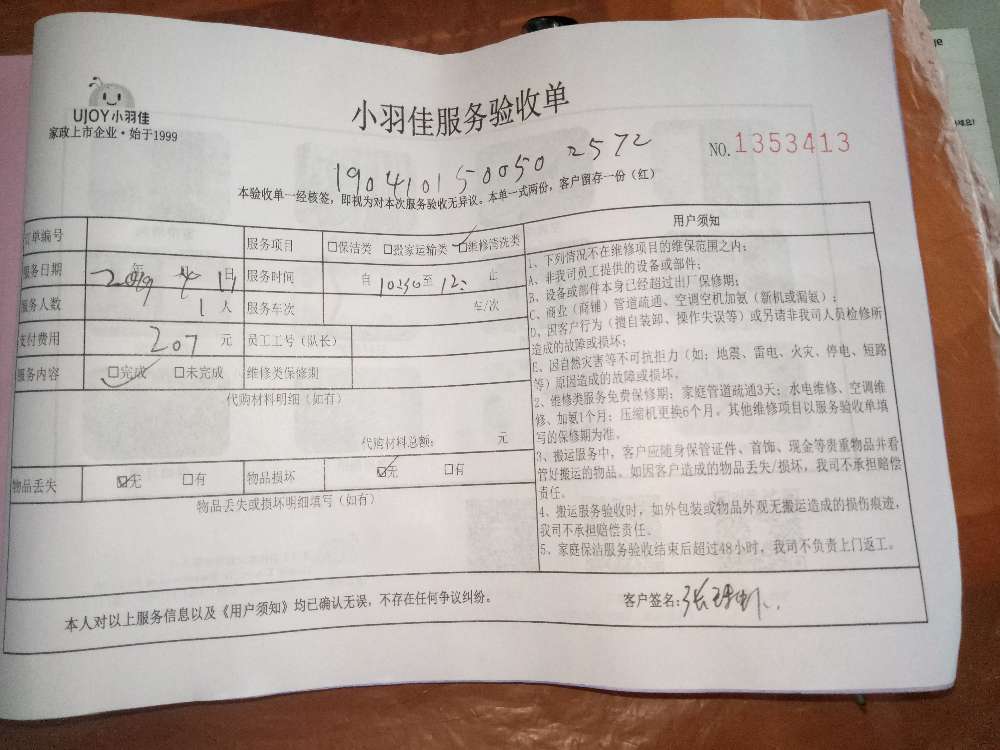 UJOY小羽佳
家政上市企业·始于1999
小羽佳服务验收单
NO.1353413
190410150050 2572
本验收单一经核签，即视为对本次服务验收无异议。本单一式两份，客户留存一份（红）
订单编号
服务项目 □保洁类 □搬家运输类 □维修清洗类
服务日期 2019年4 1日 服务时间 自 10:30至12: 止
服务人数 1人 服务车次 车/次
支付费用 207 元 员工工号（队长）
服务内容 □完成 □未完成 维修类保修期
代购材料明细（如有）
代购材料总额： 元
物品丢失 ☑无 □有 物品损坏 ☑无 □有
物品丢失或损坏明细填写（如有）
用户须知
1、下列情况不在维修项目的维保范围之内：
A、非我司员工提供的设备或部件；
B、设备或部件本身已经超过出厂保修期；
C、商业（商铺）管道疏通、空调空机加氨（新机或漏氨）；
D、因客户行为（擅自装卸、操作失误等）或另请非我司人员检修所
造成的故障或损坏；
E、因自然灾害等不可抗拒力（如：地震、雷电、火灾、停电、短路
等）原因造成的故障或损坏。
2、维修类服务免费保修期：家庭管道疏通3天；水电维修、空调维
修、加氨1个月；压缩机更换6个月。其他维修项目以服务验收单填
写的保修期为准。
3、搬运服务中，客户应随身保管证件、首饰、现金等贵重物品并看
管好搬运的物品。如因客户造成的物品丢失/损坏，我司不承担赔偿
责任。
4、搬运服务验收时，如外包装或物品外观无搬运造成的损伤痕迹，
我司不承担赔偿责任。
5、家庭保洁服务验收结束后超过48小时，我司不负责上门返工。
本人对以上服务信息以及《用户须知》均已确认无误，不存在任何争议纠纷。
客户签名：张